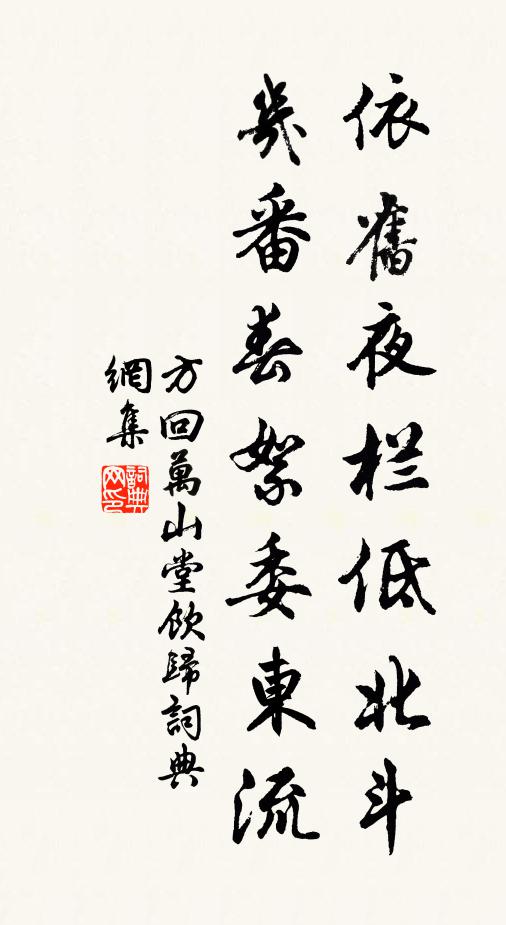 依舊夜栏低北斗
幾番春絮委東流
方回萬山堂飲歸詞典
網集
詞典
网印